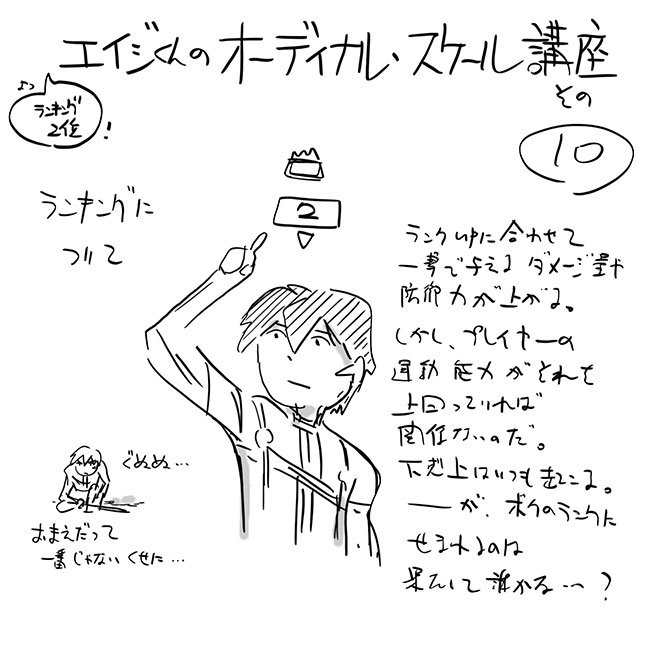 エイジくんのオーディナル・スケール講座
その
10
よっ
ランキング
2位
!
ランキングに
ついて
2
ランクUPに合わせて
一撃で与えるダメージ量や
防御力が上がる。
しかし、プレイヤーの
運動能力がそれを
上回っていれば
関係ないのだ。
下克上はいつも起こる。
――が、ボクのランクに
せまれるのは
果たして誰かな…?
ぐぬぬ…
おまえだって
一番じゃないくせに…